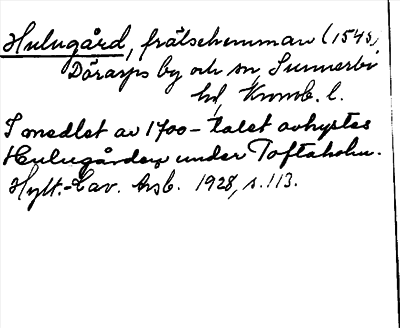 Hulugård, frälsehemman (1545),
Dörarps by och sn, Sunnerbo
hd, Kronob. l.
I medlet av 1700-talet avhystes
Hulugården under Toftaholm.
Hylt.-Cav. Årsb. 1928, s. 113.